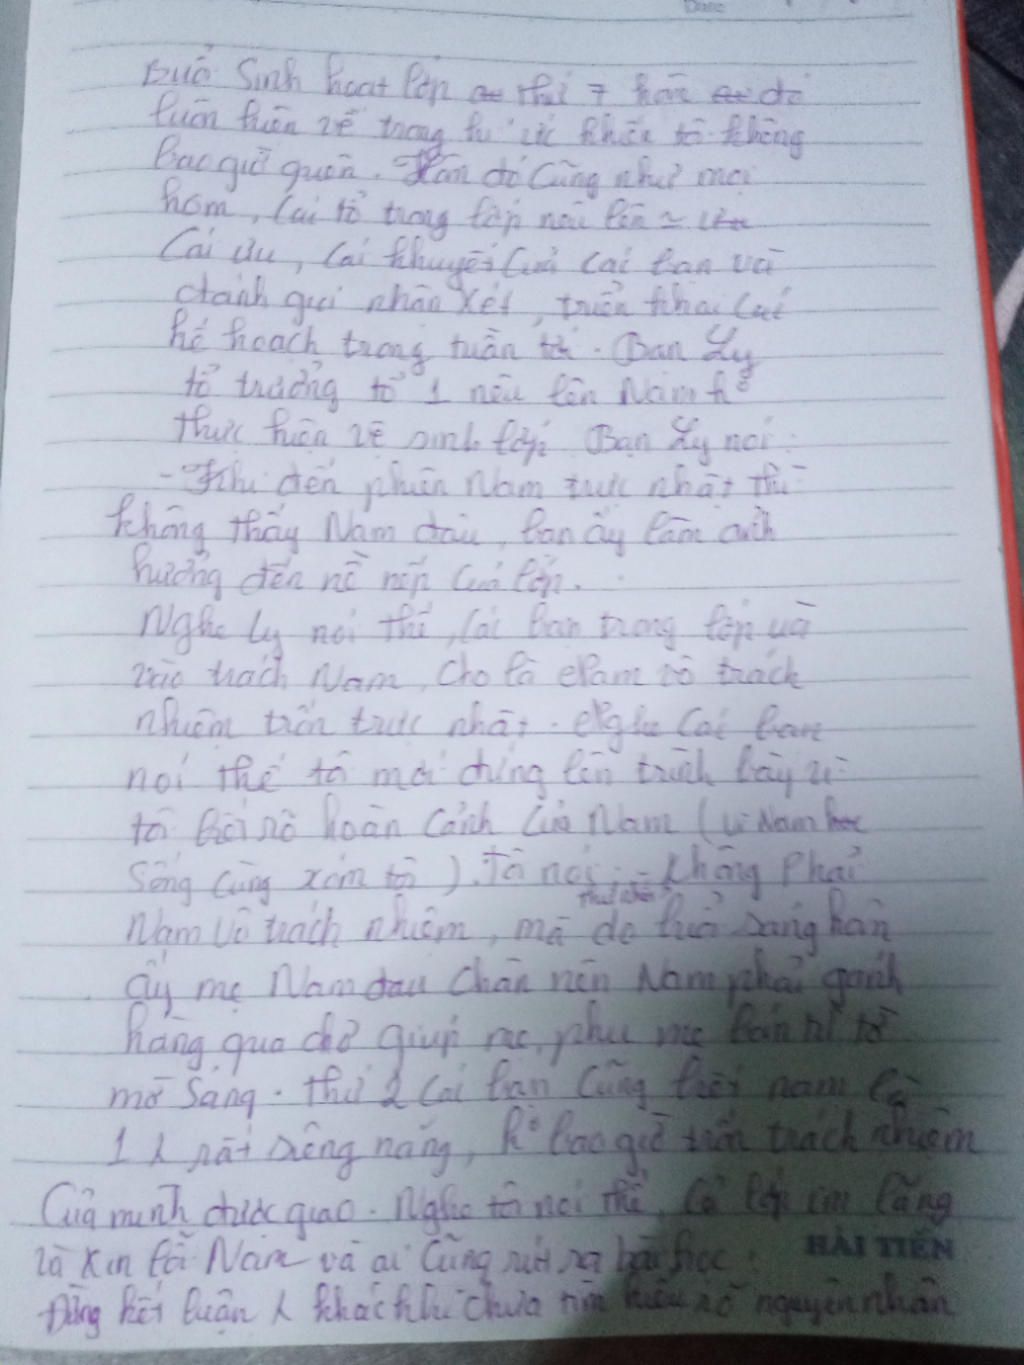 Date
Buổi Sinh hoạt lớp thứ 7 hôm đó
luôn hiện về trong kí ức khiến tô không
Bao giờ quên. Hôm đó Cũng như mọi
hôm, Các tổ trong lớp nêu lên
Cái ưu, Cái khuyết Của các bạn và
đánh giá nhận xét, triển khai Các
kế hoạch trong tuần tới. Bạn Ly
tổ trưởng tổ 1 nêu lên Nam k°
thực hiện vệ sinh lớp. Bạn Ly nói:
- Khi đến phiên Nam trực nhật thì
không thấy Nam đâu, bạn ấy làm ảnh
hưởng đến nề nếp Của lớp.
Nghe Ly nói thế, Các bạn trong lớp và
trách Nam, Cho là Nam vô trách
nhiệm trốn trực nhật. Nghe Các bạn
nói thế tô mới đứng lên trình bày vì
tô biết rõ hoàn Cảnh Của Nam (vì Nam
Sống Cùng xóm tô). Tô nói: - Không Phải
thứ nhất
Nam Vô trách nhiệm, mà do buổi sáng hôm
ấy mẹ Nam đau Chân nên Nam phải gánh
hàng qua chợ giúp mẹ, phụ mẹ bán từ tờ
mờ Sáng. Thứ 2 Các bạn Cũng biết nam là
1 λ rất siêng năng, k° bao giờ trốn trách nhiệm
Của mình được giao. Nghe tô nói thế, Cả lớp im lặng
và xin lỗi Nam và ai Cũng rút ra bài học:
Đừng kết luận λ khác khi chưa tìm hiểu rõ nguyên nhân
HẢI TIẾN